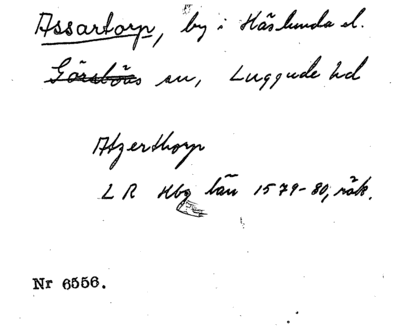 Assartorp, by i Häslunda el.
Görslövs sn, Luggude hd
Atzerthorp
LR Hbg län 1579-80, räk.
Nr 6556.